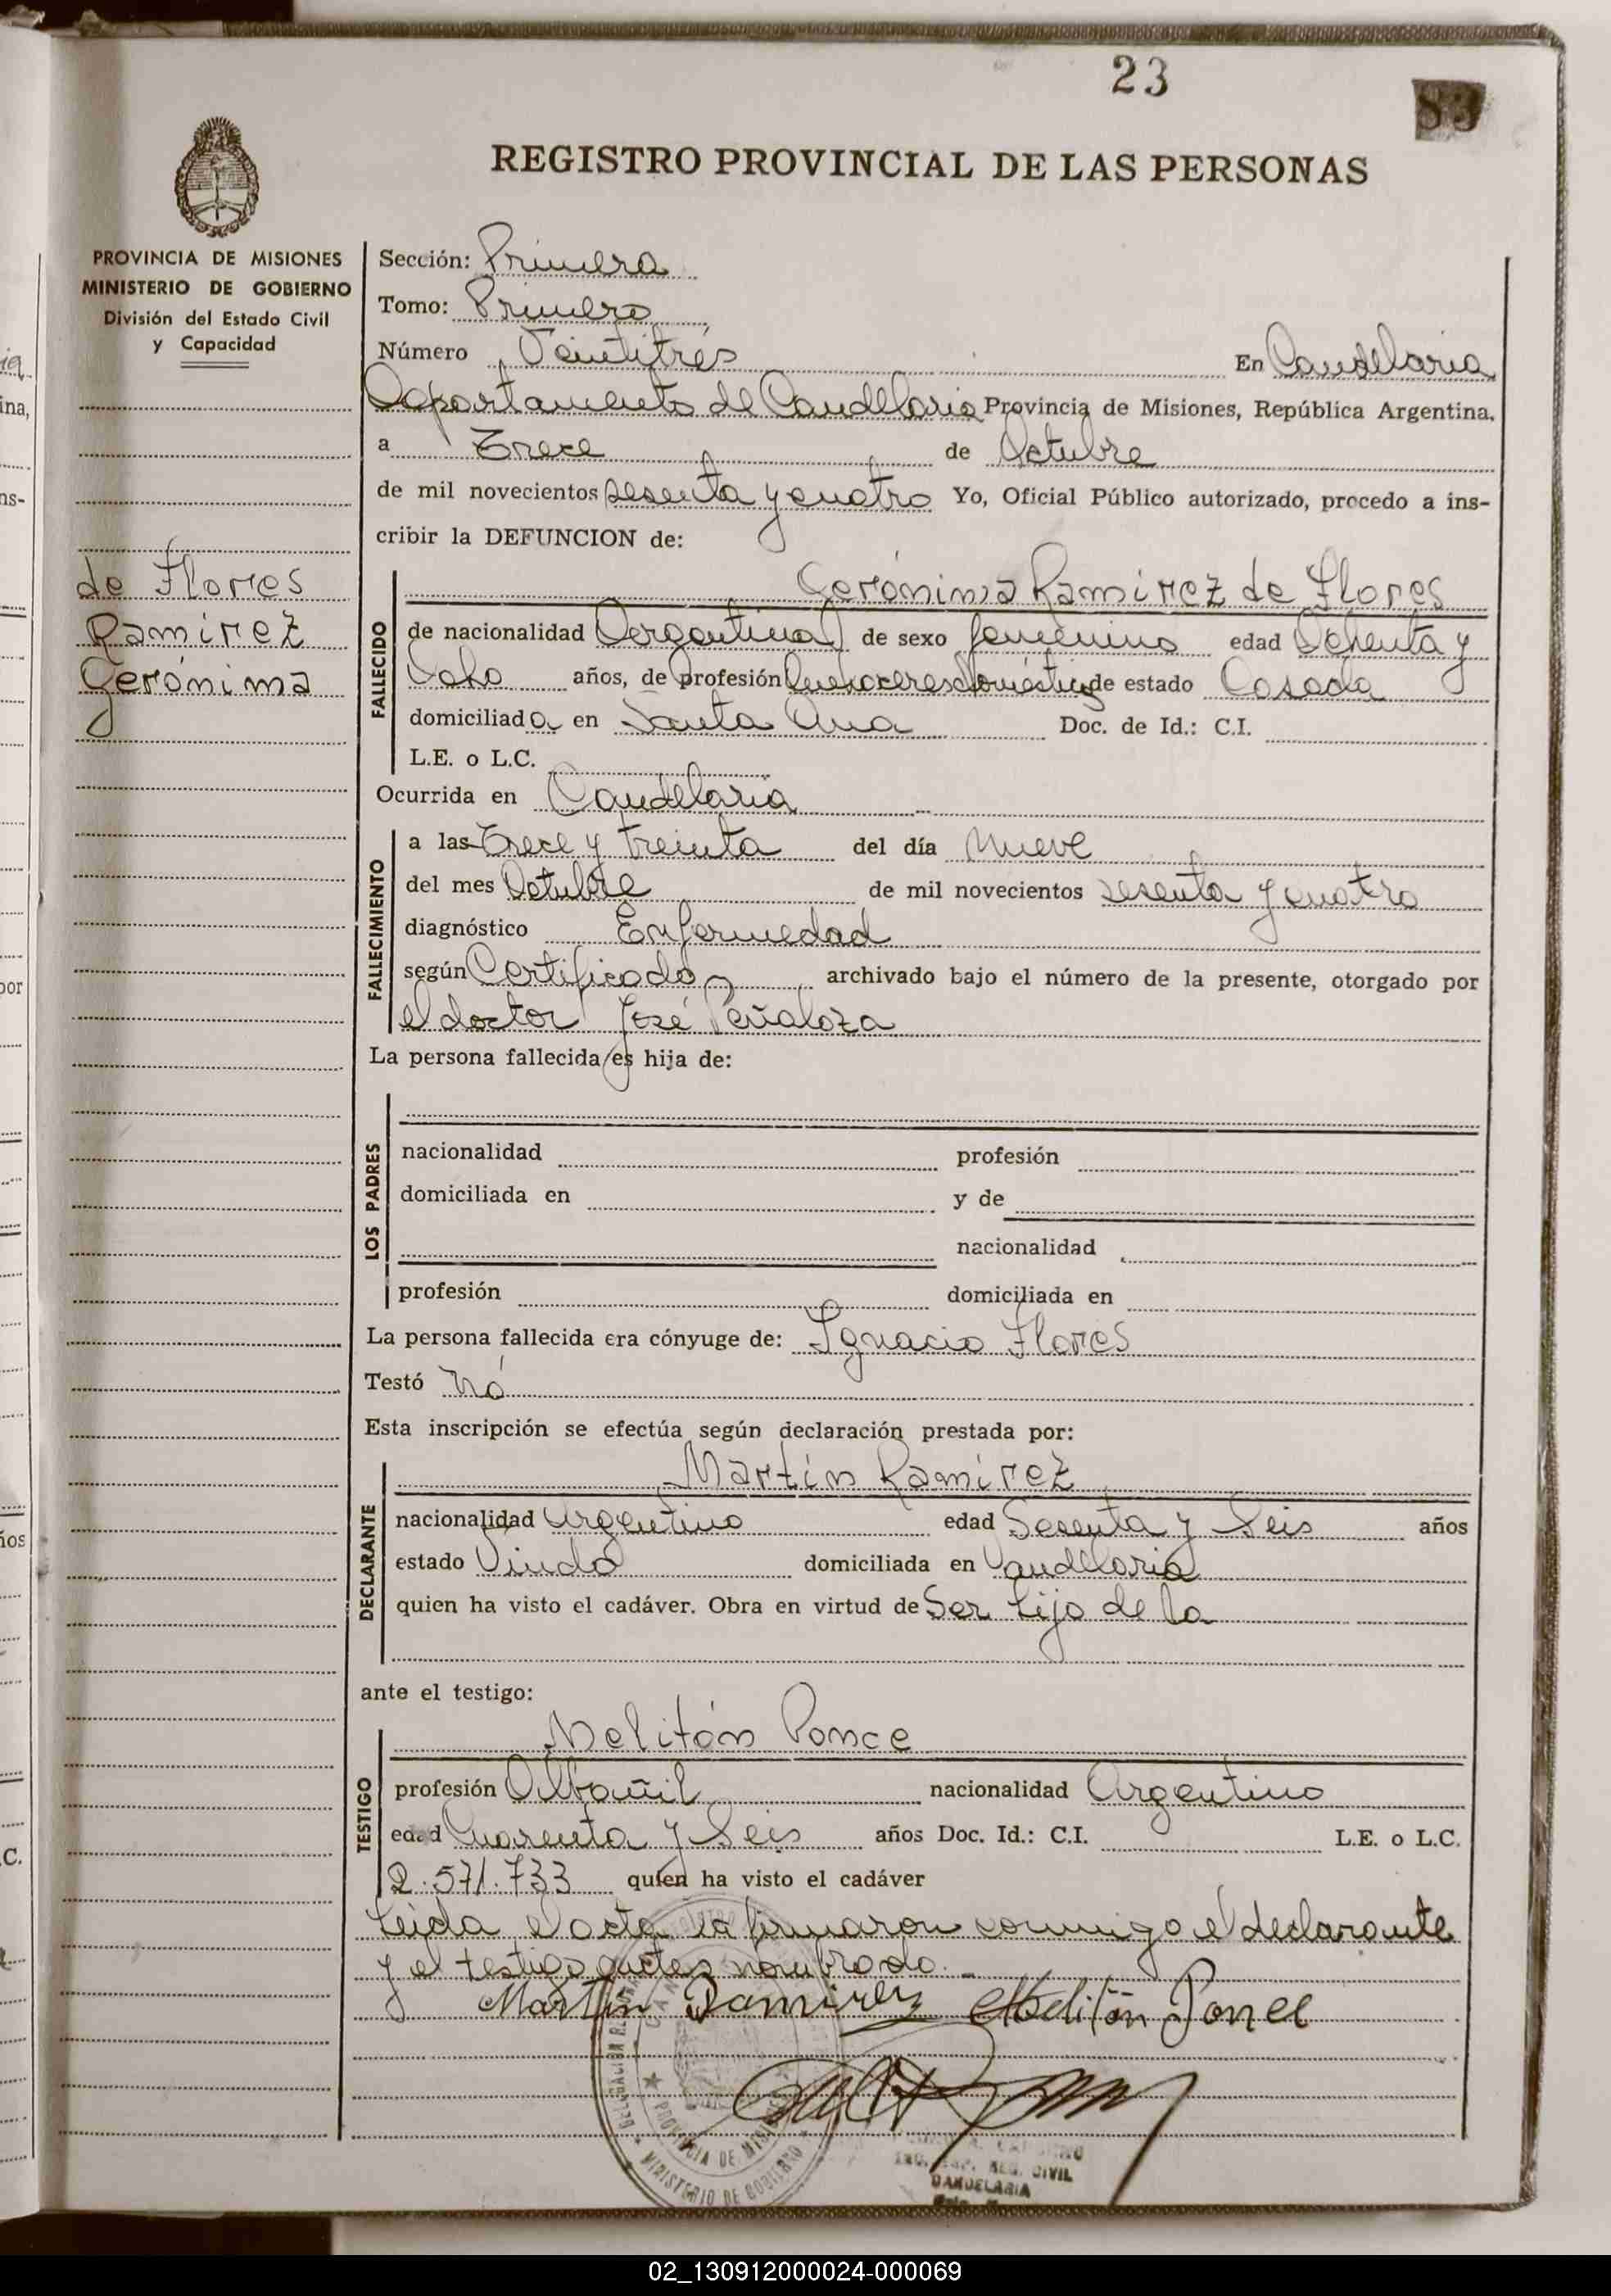 23
83
REGISTRO PROVINCIAL DE LAS PERSONAS
PROVINCIA DE MISIONES
MINISTERIO DE GOBIERNO
División del Estado Civil
y Capacidad
de Flores
Ramirez
Gerónima
Sección: Primera
Tomo: Primero
Número Veintitrés En Candelaria
Departamento de Candelaria Provincia de Misiones, República Argentina.
a Trece de Octubre
de mil novecientos sesenta y cuatro Yo, Oficial Público autorizado, procedo a ins-
cribir la DEFUNCION de:
FALLECIDO
Gerónima Ramirez de Flores
de nacionalidad Argentina de sexo femenino edad Ochenta y
Ocho años, de profesión Quehaceres domésticos de estado Casada
domiciliada en Santa Ana Doc. de Id.: C.I.
L.E. o L.C.
Ocurrida en Candelaria
FALLECIMIENTO
a las Trece y treinta del día nueve
del mes Octubre de mil novecientos sesenta y cuatro
diagnóstico Enfermedad
según Certificado archivado bajo el número de la presente, otorgado por
el doctor José Peñaloza
La persona fallecida es hija de:
LOS PADRES
nacionalidad profesión
domiciliada en y de
nacionalidad
profesión domiciliada en
La persona fallecida era cónyuge de: Ignacio Flores
Testó Nó
Esta inscripción se efectúa según declaración prestada por:
DECLARANTE
Martín Ramirez
nacionalidad Argentino edad Sesenta y Seis años
estado Viudo domiciliada en Candelaria
quien ha visto el cadáver. Obra en virtud de Ser hijo de la
ante el testigo:
TESTIGO
Melitón Ponce
profesión Albañil nacionalidad Argentino
edad Cuarenta y Seis años Doc. Id.: C.I. L.E. o L.C.
2.571.733 quien ha visto el cadáver
Leída el acta la firmaron conmigo el declarante
y el testigo antes nombrado.
Martin Ramirez Melitón Ponce
PROVINCIA DE MISIONES
MINISTERIO DE GOBIERNO
REG. CIVIL
CANDELARIA
02_130912000024-000069